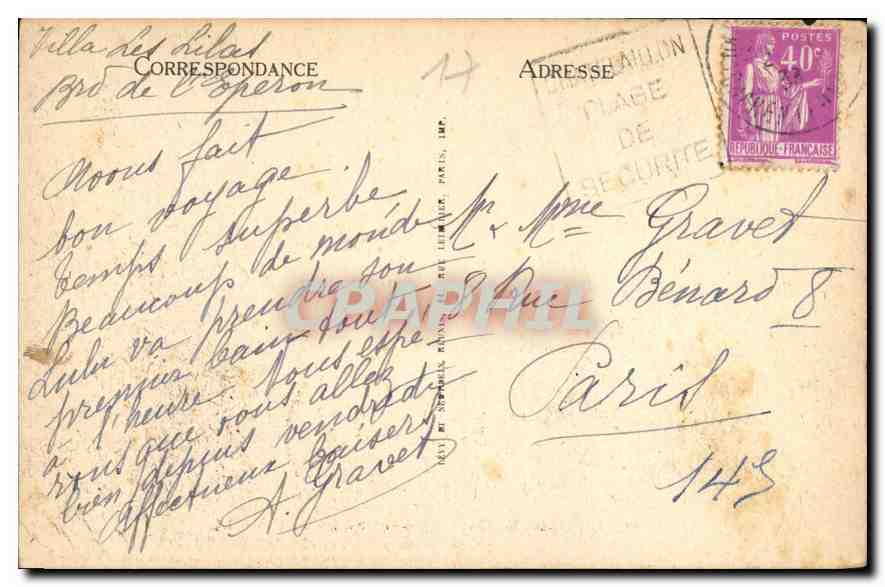 Villa Les Lilas
CORRESPONDANCE
Brd de l'Eperon
Avons fait
bon voyage.
temps superbe
Beaucoup de monde
Lulu va prendre son
premier bain tout
à l'heure. Nous espé-
rons que vous allez
bien depuis vendredi
Affectueux baisers
A. Gravet
LÉVY ET NEURDEIN RÉUNIS, 44, RUE LETELLIER, PARIS, IMP.
17
ADRESSE
CHATELAILLON
PLAGE
DE
SECURITE
POSTES
40c
REPUBLIQUE-FRANÇAISE
Mr & Mme Gravet
8 Rue Bénard 8
Paris
14e
CPAPHIL